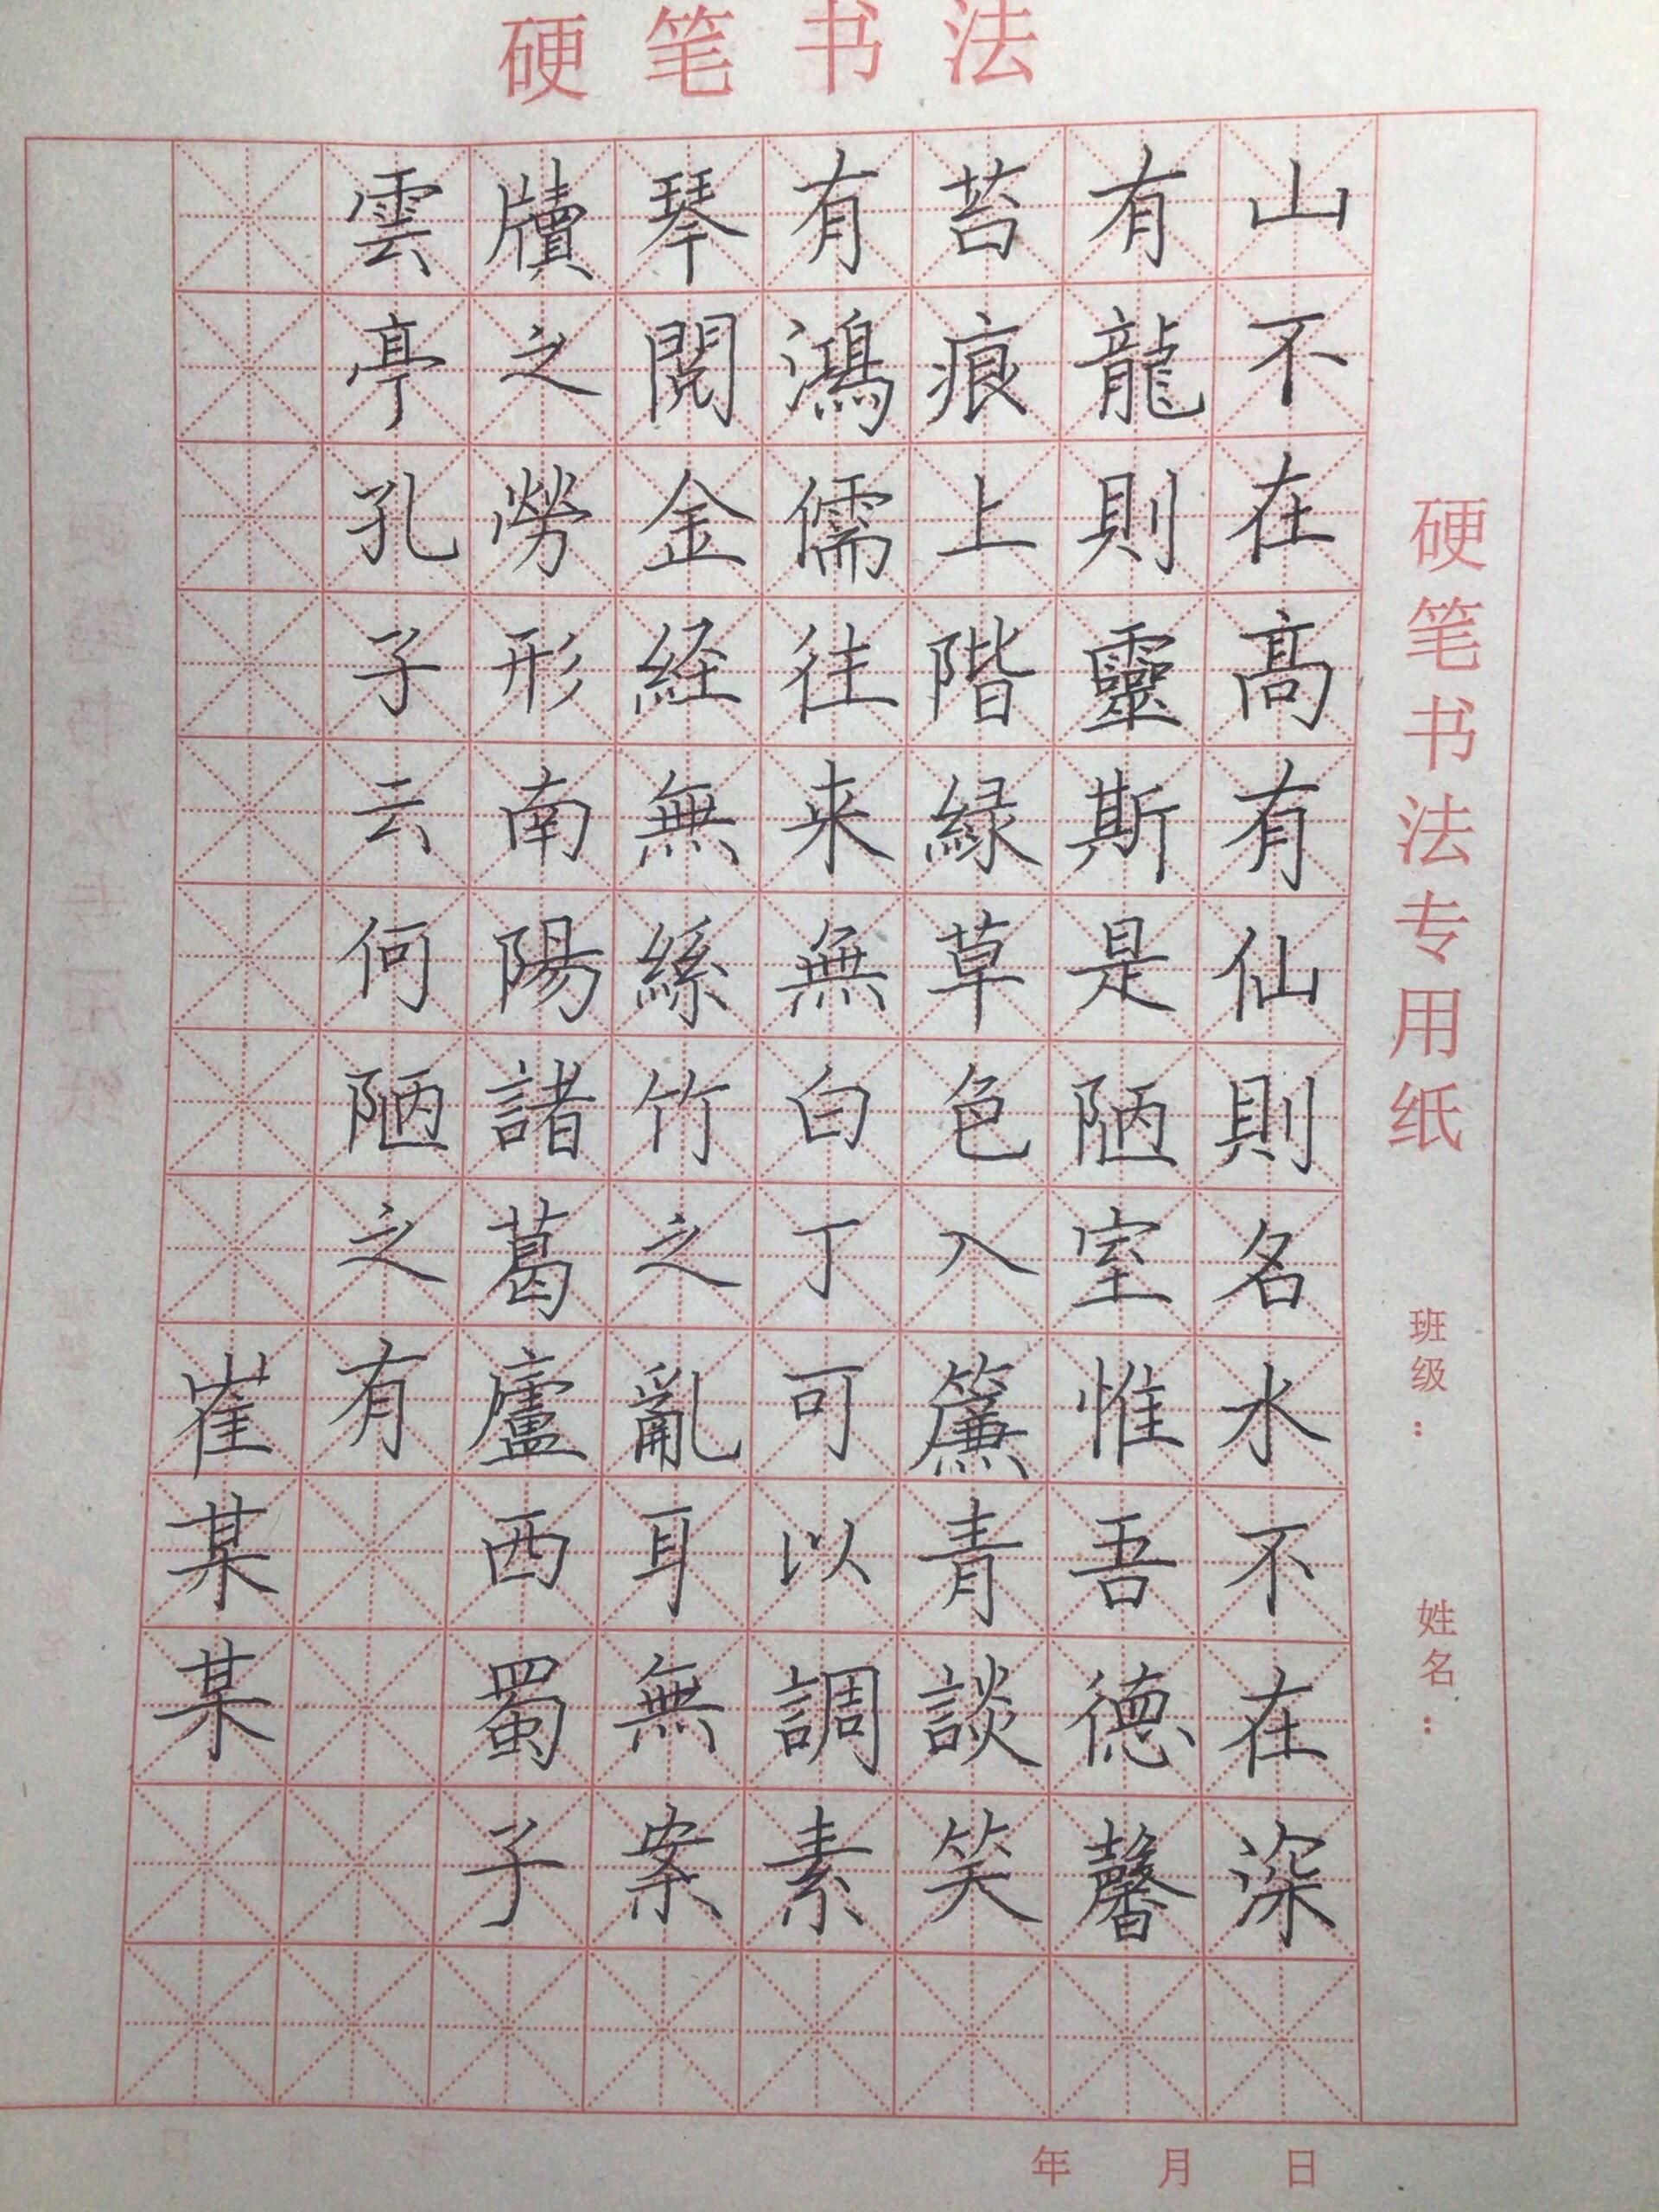 硬笔书法
硬笔书法专用纸
班级：
姓名：
山不在高有仙則名水不在深
有龍則靈斯是陋室惟吾德馨
苔痕上階緑草色入簾青談笑
有鴻儒往来無白丁可以調素
琴閱金経無絲竹之亂耳無案
牘之勞形南陽諸葛廬西蜀子
雲亭孔子云何陋之有
崔某某
年 月 日